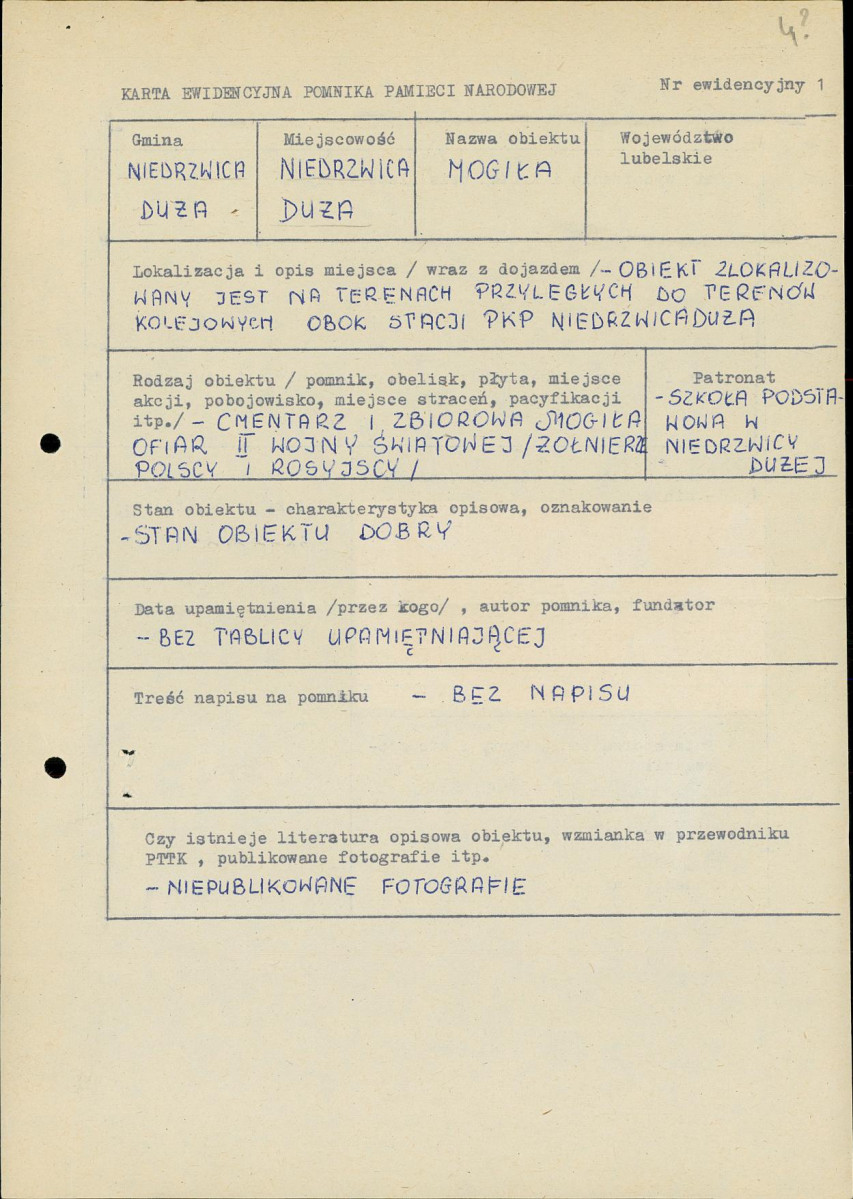 4?
KARTA EWIDENCYJNA POMNIKA PAMIECI NARODOWEJ
Nr ewidencyjny 1
Gmina
NIEDRZWICA
DUŻA
Miejscowość
NIEDRZWICA
DUŻA
Nazwa obiektu
MOGIŁA
Województwo
lubelskie
Lokalizacja i opis miejsca / wraz z dojazdem /- OBIEKT ZLOKALIZO-
WANY JEST NA TERENACH PRZYLEGŁYCH DO TERENÓW
KOLEJOWYCH OBOK STACJI PKP NIEDRZWICA DUŻA
Rodzaj obiektu / pomnik, obelisk, płyta, miejsce
akcji, pobojowisko, miejsce straceń, pacyfikacji
itp./ - CMENTARZ I ZBIOROWA MOGIŁA
OFIAR II WOJNY ŚWIATOWEJ /ŻOŁNIERZE
POLSCY I ROSYJSCY/
Patronat
- SZKOŁA PODSTA-
WOWA W
NIEDRZWICY
DUŻEJ
Stan obiektu - charakterystyka opisowa, oznakowanie
- STAN OBIEKTU DOBRY
Data upamiętnienia /przez kogo/ , autor pomnika, fundator
- BEZ TABLICY UPAMIĘTNIAJĄCEJ
Treść napisu na pomniku - BEZ NAPISU
Czy istnieje literatura opisowa obiektu, wzmianka w przewodniku
PTTK , publikowane fotografie itp.
- NIEPUBLIKOWANE FOTOGRAFIE